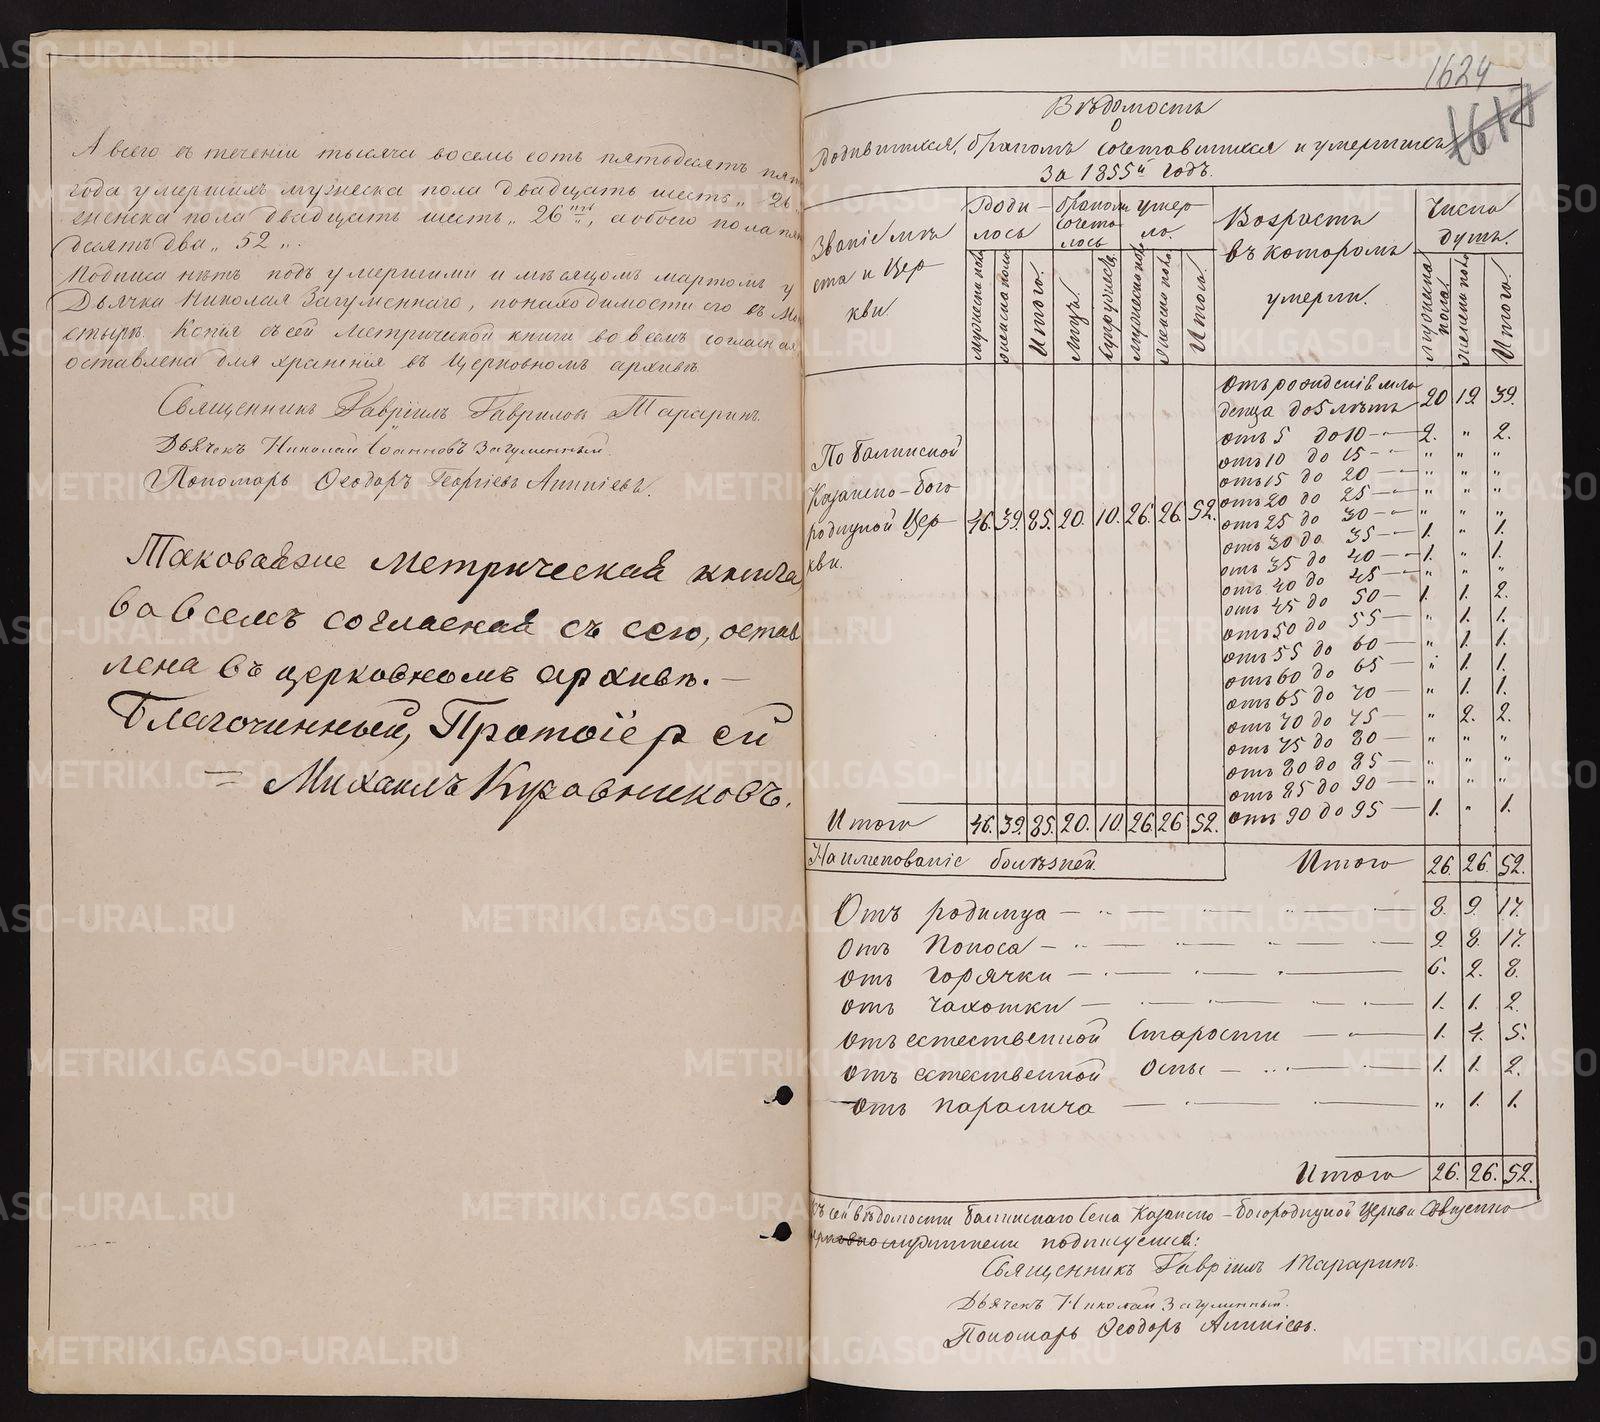 А всего въ теченіи тысяча восемь сотъ пятьдесятъ пят
года умершихъ мужеска пола двадцать шесть „ 26
женска пола двадцать шесть „ 26 „, а обоего пола пя
десятъ два „ 52 „.
Подписа нѣтъ подъ умершими и мѣсяцомъ мартомъ у
Дьячка Николая Загуменнаго, по находимости его въ Мо
стырѣ. Копія съ сей метрической книги во всемъ согласная
оставлена для храненія въ Церковномъ архивѣ.
Священникъ Гавріилъ Гавриловъ Тараринъ.
Дьячекъ Николай Іоанновъ Загуменный.
Пономарь Ѳеодоръ Георгіевъ Алипіевъ.
Таковая же Метрическая книга,
во всемъ согласная съ сею, остав
лена въ церковномъ архивѣ. —
Благочинный, Протоіерей
— Михаилъ Кузовниковъ.
1624
1617
Вѣдомость
О
родившихся, бракомъ сочетавшихся и умершихъ
за 1855й годъ.
Званіе мѣ
ста и Цер
кви
Роди-
лось
бракомъ
сочета
лось
умер
ло.
Возрастъ
въ которомъ
умерли.
Число
душъ.
мужеска пола
женска пола
Итого.
Мужъ.
супружес.
мужеска пола
женска пола
Итого.
мужеска пола
женска пола
Итого.
По балинской
Казанско-бого
родицкой Цер
кви.
46. 39. 85. 20. 10. 26. 26. 52.
отъ рожденія мла
денца до 5 лѣтъ 20 19. 39.
отъ 5 до 10 — 2. „ 2.
отъ 10 до 15 — „ „ „
отъ 15 до 20 — „ „ „
отъ 20 до 25 — „ „ „
отъ 25 до 30 — „ „ „
отъ 30 до 35 — 1. „ 1.
отъ 35 до 40 — 1. „ 1.
отъ 40 до 45 — „ „ „
отъ 45 до 50 — 1. 1. 2.
отъ 50 до 55 — „ 1. 1.
отъ 55 до 60 — „ 1. 1.
отъ 60 до 65 — „ 1. 1.
отъ 65 до 70 — „ 1. 1.
отъ 70 до 75 — „ 2. 2.
отъ 75 до 80 — „ „ „
отъ 80 до 85 — „ „ „
отъ 85 до 90 — „ „ „
отъ 90 до 95 — 1. „ 1.
Итого 46. 39. 85. 20. 10. 26. 26 52.
Наименованіе болѣзней.
Итого 26. 26. 52.
Отъ родимца — 8. 9. 17.
отъ поноса — 9. 8. 17.
отъ горячки — 6. 2. 8.
отъ чахотки — 1. 1. 2.
отъ естественной старости — 1. 4. 5.
отъ естественной оспы — 1. 1. 2.
отъ паралича — „ 1. 1.
Итого 26. 26. 52.
Къ сей вѣдомости балинскаго села Казанско-богородицкой Церкви священно
служители подписуемся:
Священникъ Гавріилъ Тараринъ.
Дьячекъ Николай Загуменный.
Пономарь Ѳеодоръ Алипіевъ.
METRIKI.GASO-URAL.RU